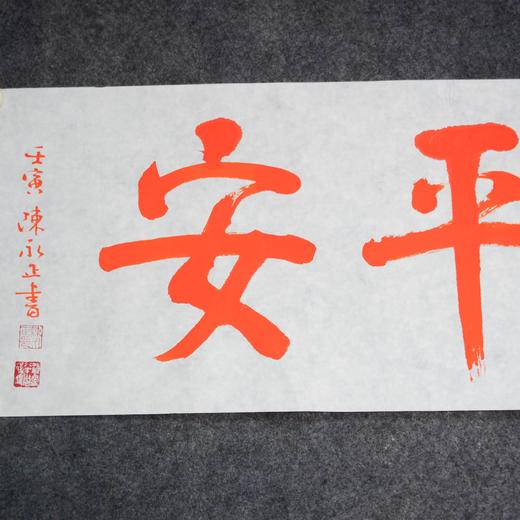 平安
壬寅 陳永正書